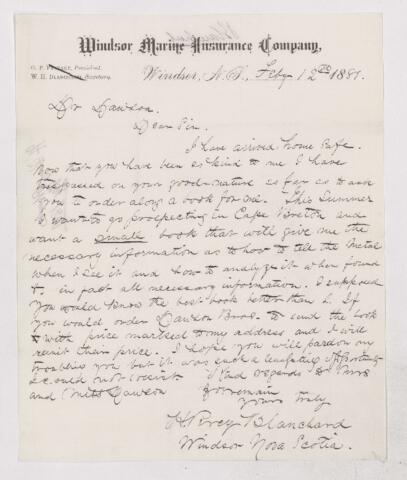 Windsor Marine Insurance Company,
President.
W. H. Blanchard, Secretary.
Windsor, N.S., Feby 12th 1881.
Dr Dawson.
Dear Sir.
I have arrived home safe.
Now that you have been so kind to me I have
trespassed on your good-nature so far as to ask
you to order along a book for me. This Summer
I want to go prospecting in Cape Breton and
want a small book that will give me the
necessary information as to how to tell the Metal
when I see it and how to analyze it when found
& in fact all necessary information. I supposed
you would know the best book better than I. If
you would order Dawson Bros. to send the book
& with price marked to my address and I will
remit them price. I hope you will pardon my
troubling you but it was such a tempting opportunity
I could not resist. Kind regards to Mrs
and Miss Dawson
I remain
Yours truly
H. Percy Blanchard
Windsor Nova Scotia.